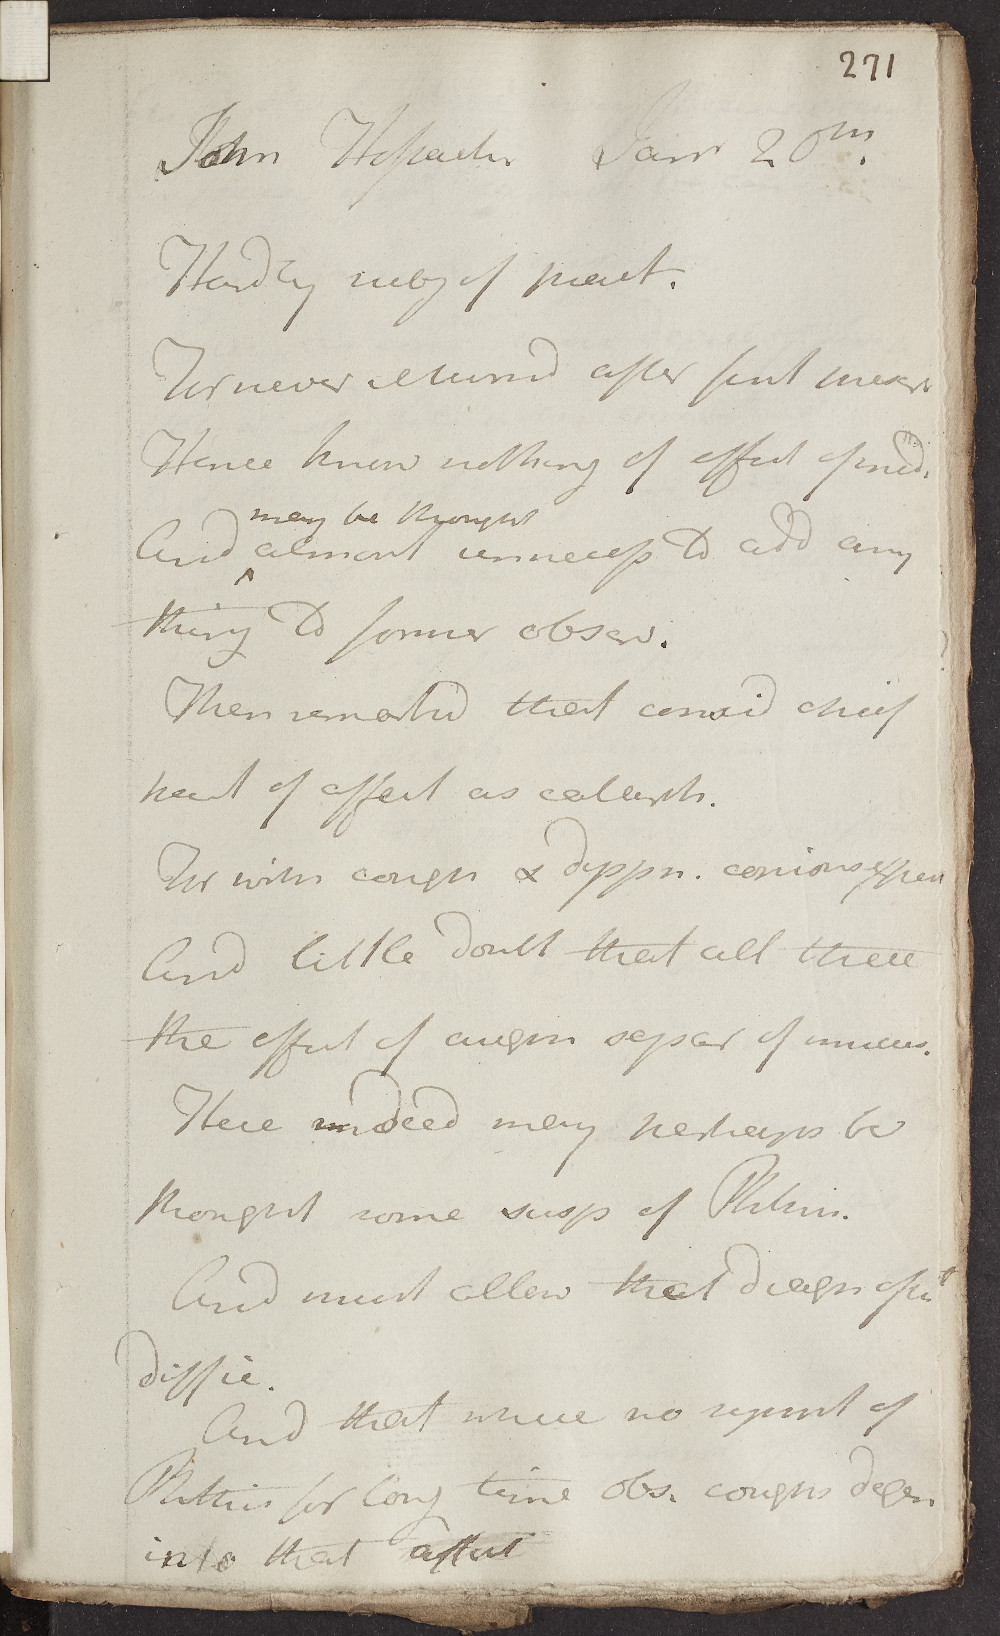 271
John Janr 20th.
Hardly subj of pract.
For never returnd after first
Hence know nothing of effect of med.
may be thought
And almost unnecess to add any
thing to former obser.
Then remarkd that consid chief
part of affect as catarrh.
For with cough & dyspn. copious expect
And little doubt that all these
the effect of augm separ of mucus.
Here indeed may perhaps be
thought some susp of Phthis.
And must allow that diagn often
diffic.
And that where no suspect of
Phthisis for long time obs. coughs degen
into that affect